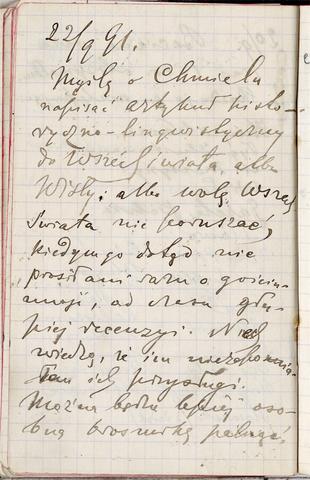 22/9 91.
Myślę o Chmielu
napisać artykuł histo-
ryczno-lingwistyczny
do Wszechświata albo
Wisły; albo wolę Wszech
świata nie poruszać,
kiedym go dotąd nie
prosił ani razu o gościn-
ność, od czasu głu-
piej recenzyi. Niech
wiedzą, że im niezapomnia-
łem ich przysługi.
Można będzie lepiej oso-
bną broszurkę palnąć.